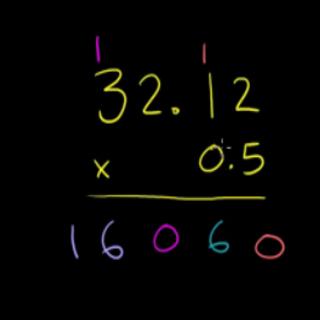 1 1
32.12
x 0.5
16060